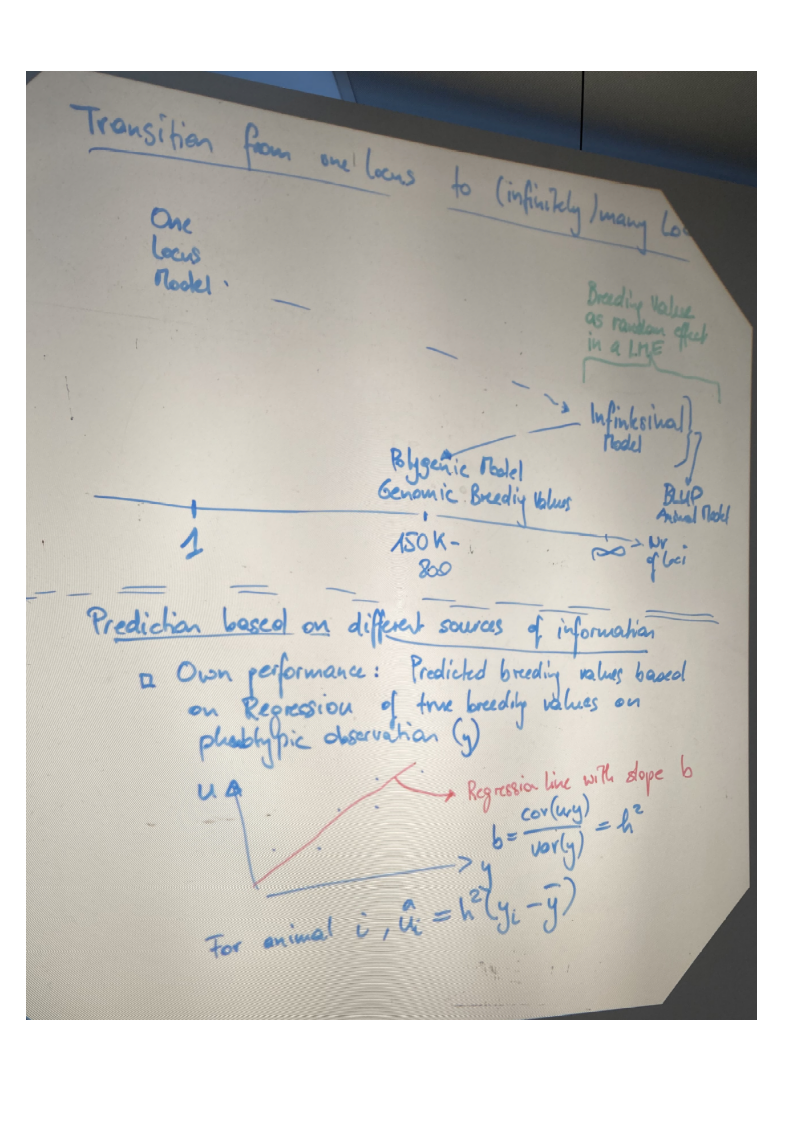 Transition from one locus to (infinitely) many Lo
One
Locus
Model
Breeding Value
as random effect
in a LME
Infinitesimal
Model
Polygenic Model
Genomic Breedig Values
BLUP
Animal Model
1
150K-
800
∞
Nr
of loci
Prediction based on different sources of information
Own performance: Predicted breeding values based
on Regression of true breeding values on
phenotypic observation (y)
u
Regression line with slope b
b = cov(u,y) / var(y) = h²
y
For animal i, ûi = h²(yi - ȳ)